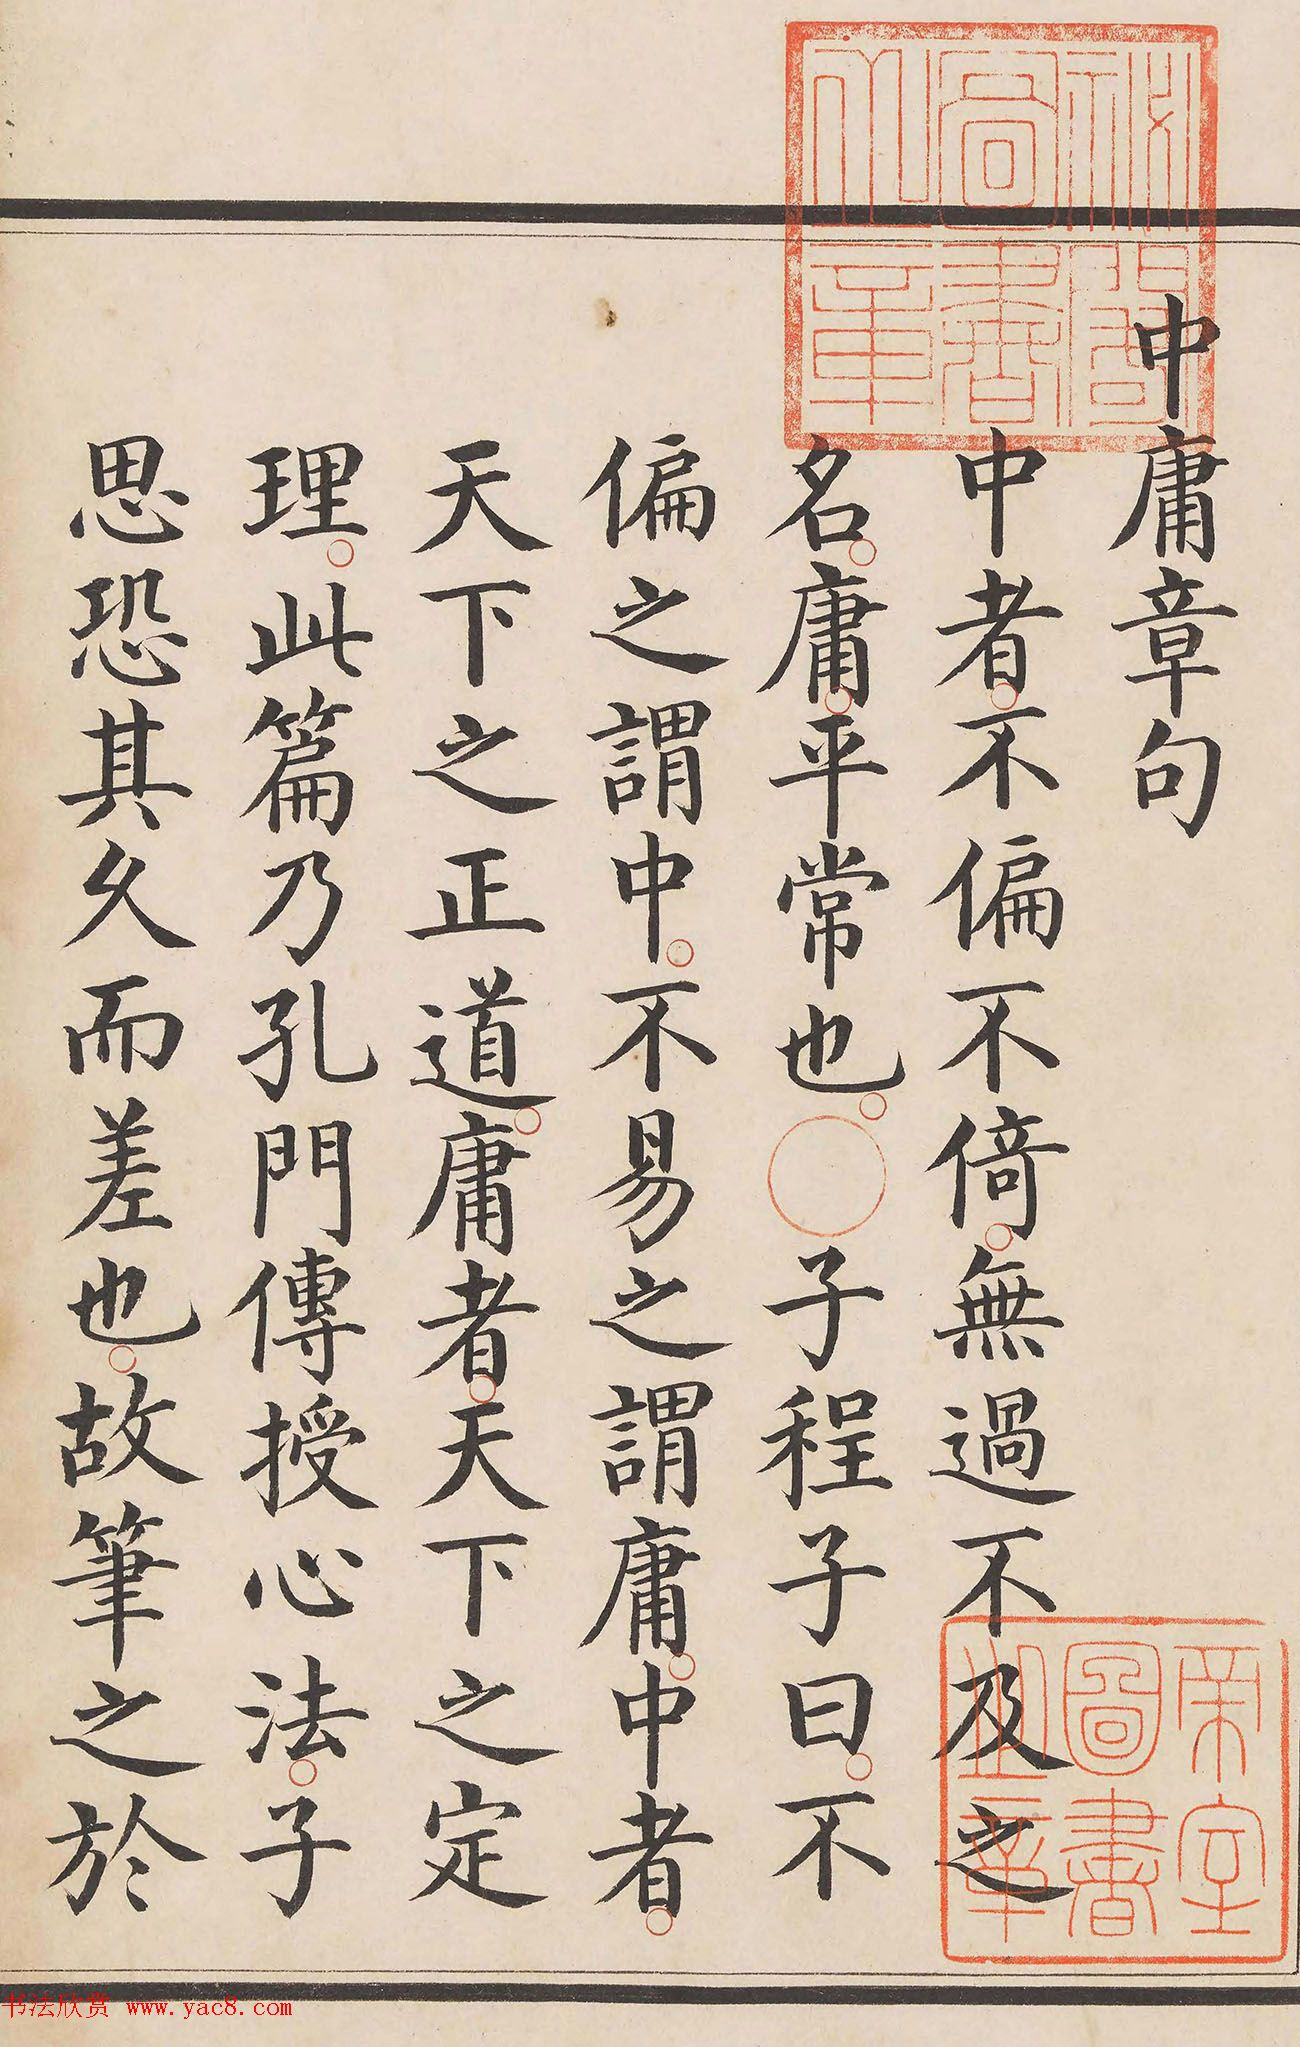 中庸章句
中者。不偏不倚。無過不及之
名。庸。平常也。○子程子曰。不
偏之謂中。不易之謂庸。中者。
天下之正道。庸者。天下之定
理。此篇乃孔門傳授心法。子
思恐其久而差也。故筆之於
秘閣圖書之章
帝室圖書之章
书法欣赏 www.yac8.com